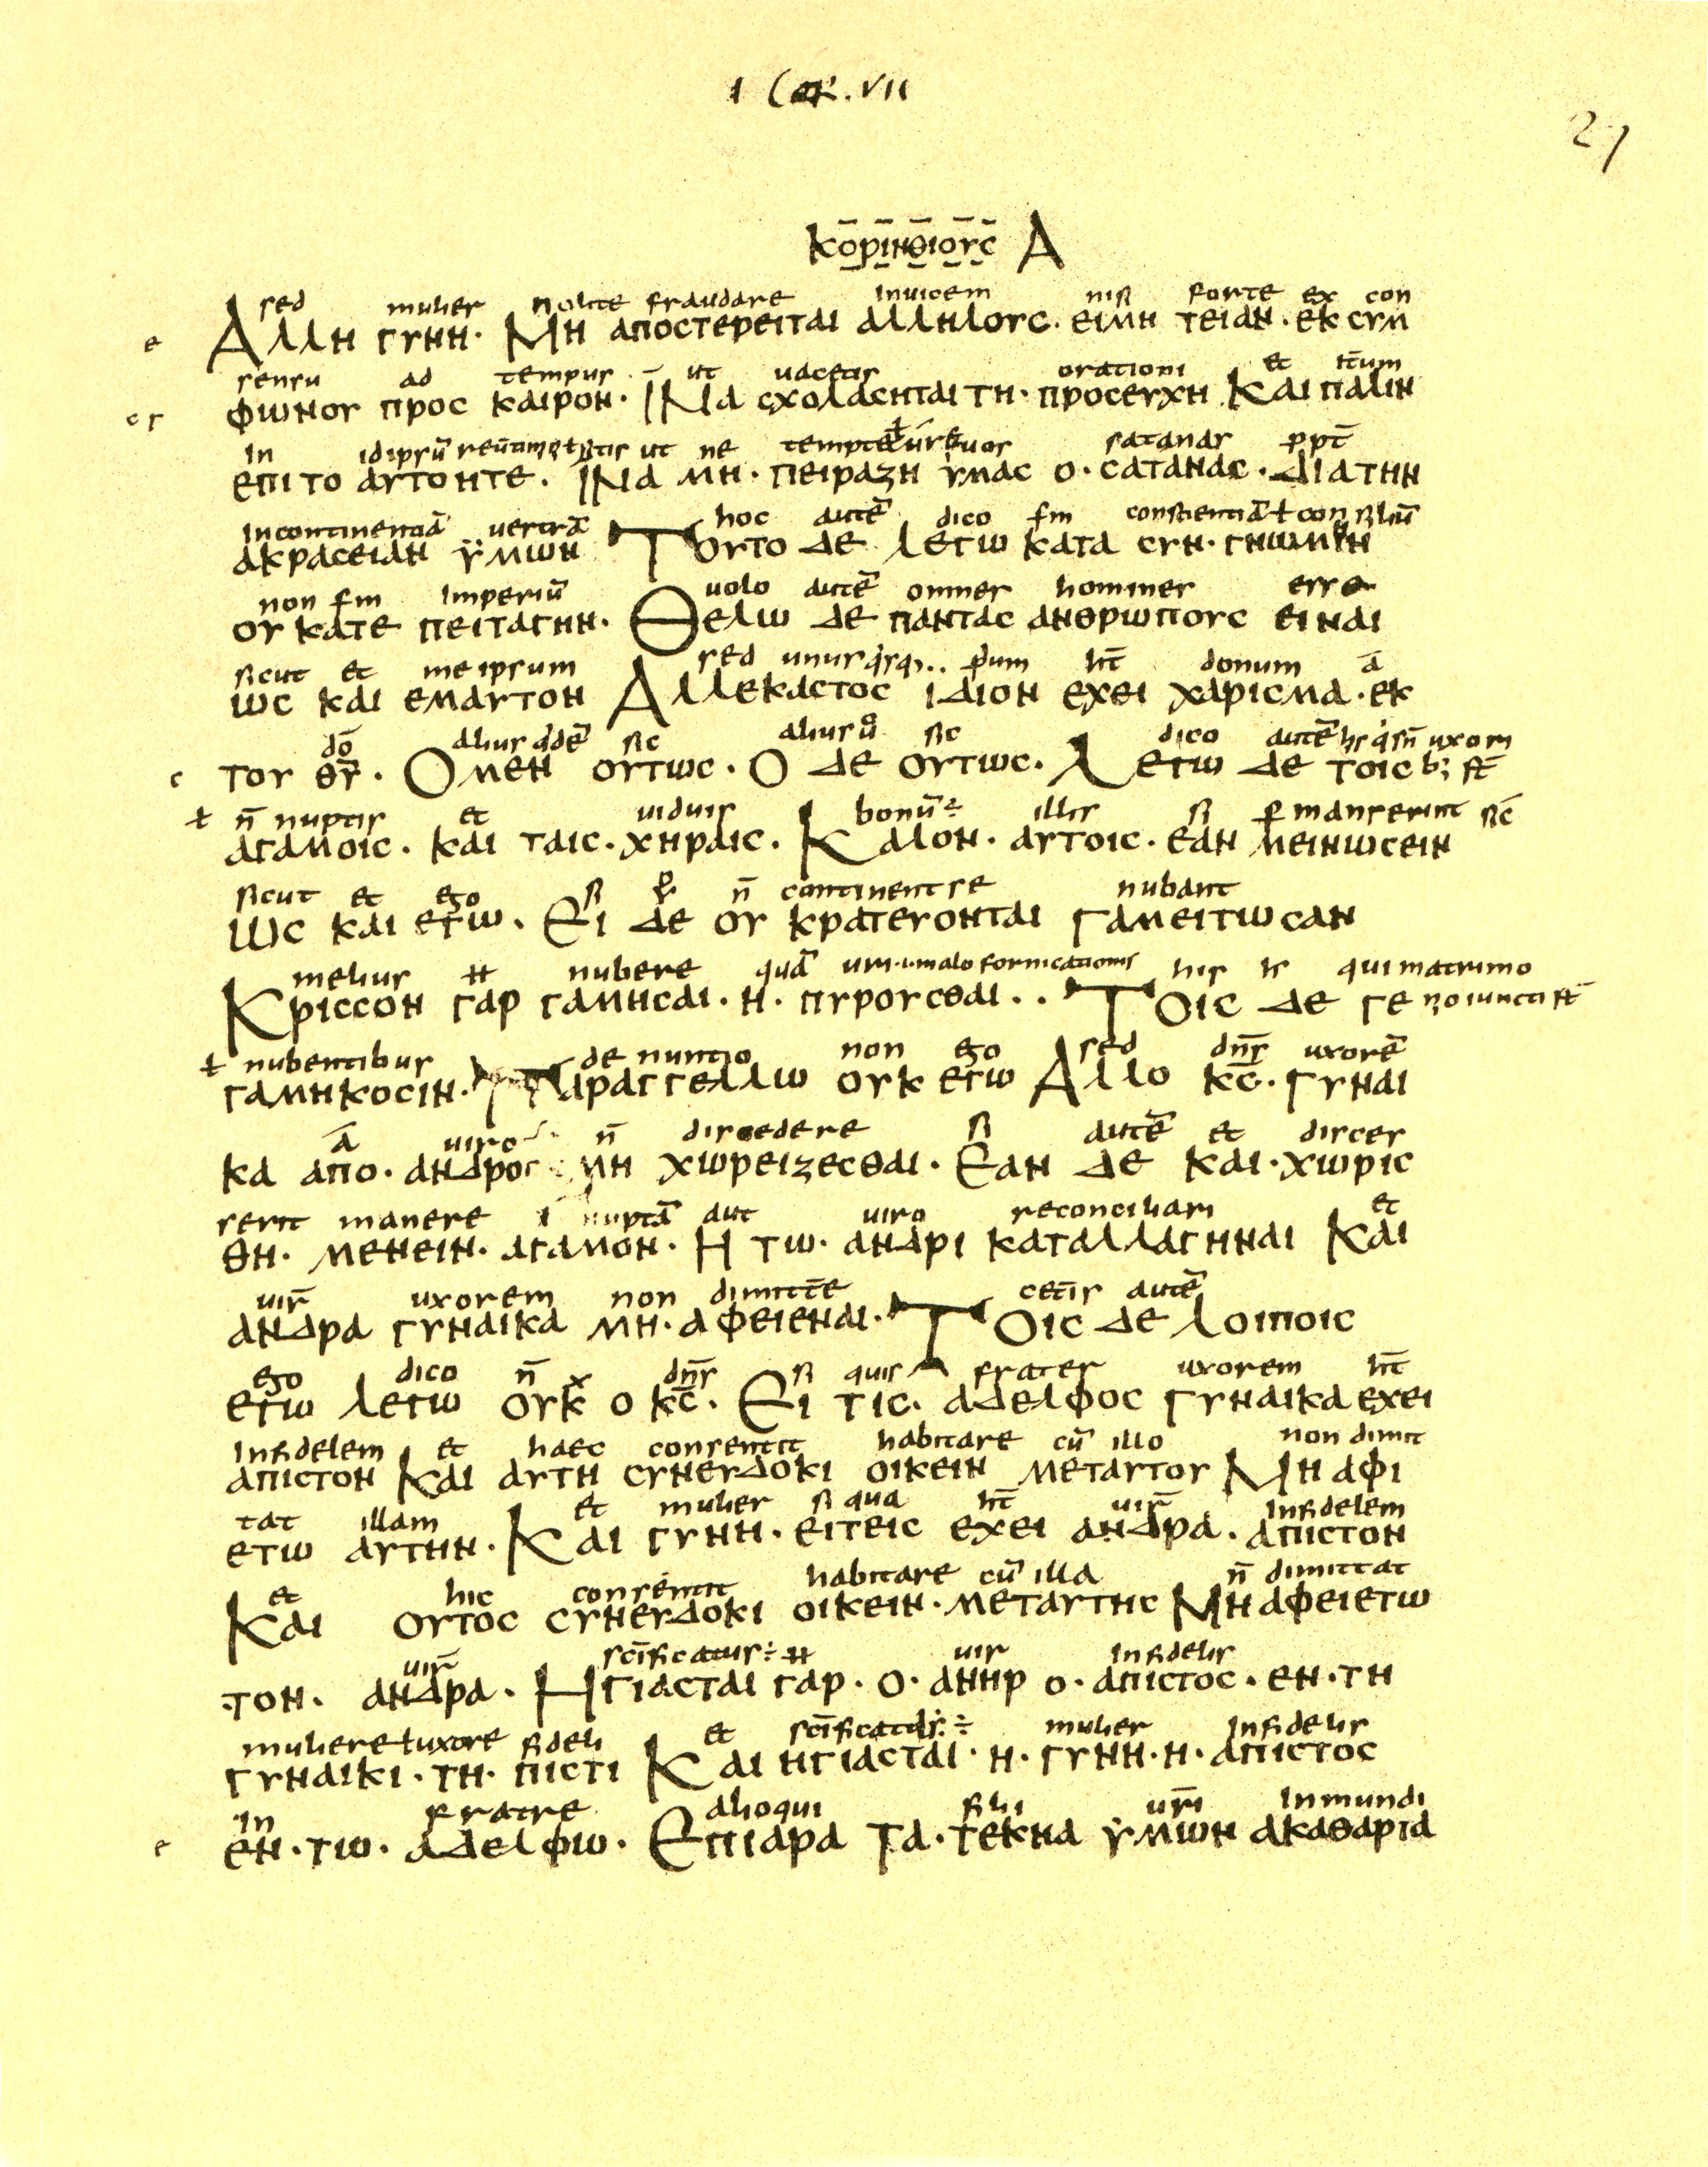 1 Cor. VII
27
ΚΟΡΙΝΘΙΟΥC Α
sed mulier nolite fraudare invicem nisi forte ex con
ΑΛΛΗ ΓΥΝΗ· ΜΗ ΑΠΟCΤΕΡΕΙΤΑΙ ΑΛΛΗΛΟΥC· ΕΙΜΗ ΤΕΙΑΝ· ΕΚ CΥΜ
sensu ad tempus ut vacetis orationi et it̄um
ΦΩΝΟΥ ΠΡΟC ΚΑΙΡΟΝ· ΙΝΑ CΧΟΛΑCΗΤΑΙ ΤΗ· ΠΡΟCΕΥΧΗ ΚΑΙ ΠΑΛΙΝ
in idipsū ut ne satanas ꝓpt̄
ΕΠΙ ΤΟ ΑΥΤΟ ΗΤΕ· ΙΝΑ ΜΗ· ΠΕΙΡΑΖΗ ΥΜΑC Ο· CΑΤΑΝΑC· ΔΙΑ ΤΗΝ
incontinentiā vestrā hoc autē dico s̄m conscientiā ɫ consiliū
ΑΚΡΑCΕΙΑΝ ΫΜΩΝ ΤΟΥΤΟ ΔΕ ΛΕΓΩ ΚΑΤΑ CΥΝ· ΓΝΩΜΗΝ
non s̄m imperiū volo autē omnes homines esse
ΟΥ ΚΑΤΕ ΠΕΙΤΑΓΗΝ· ΘΕΛΩ ΔΕ ΠΑΝΤΑC ΑΝΘΡΩΠΟΥC ΕΙΝΑΙ
sicut et me ipsum sed unusqisq·· ꝓum ht̄ donum ā
ΩC ΚΑΙ ΕΜΑΥΤΟΝ ΑΛΛΕΚΑCΤΟC ΙΔΙΟΝ ΕΧΕΙ ΧΑΡΙCΜΑ· ΕΚ
dō alius qidē sic alius v̊ sic dico autē his qi sn̄ uxori
ΤΟΥ Θ̄Ῡ· ΟΜΕΝ ΟΥΤΩC· Ο ΔΕ ΟΥΤΩC· ΛΕΓΩ ΔΕ ΤΟΙC b; st̄
ɫ n̄ nuptis et viduis bonū ÷ illis si ꝑmanserint sic̄
ΑΓΑΜΟΙC· ΚΑΙ ΤΑΙC· ΧΗΡΑΙC· ΚΑΛΟΝ· ΑΥΤΟΙC· ΕΑΝ ΜΕΙΝΩCΕΙΝ
sicut et ego si n̄ continent se nubant
ΩC ΚΑΙ ΕΓΩ· ΕΙ ΔΕ ΟΥ ΚΡΑΤΕΥΟΝΤΑΙ ΓΑΜΕΙΤΩCΑΝ
melius ħ nubere quā uri·i·malo fornicationis his is qui matrimo
ΚΡΙCCΟΝ ΓΑΡ ΓΑΜΗCΑΙ· Η· ΠΥΡΟΥCΘΑΙ·· ΤΟΙC ΔΕ ΓΕ nio iuncti st̄
ɫ nubentibus de nuntio non ego sed dn̄s uxorē
ΓΑΜΗΚΟCΙΝ· ΠΑΡΑΓΓΕΛΛΩ ΟΥΚ ΕΓΩ ΑΛΛΟ Κ̄C̄· ΓΥΝΑΙ
ā viro n̄ discedere si autē et disces
ΚΑ ΑΠΟ· ΑΝΔΡΟC ΜΗ ΧΩΡΕΙΖΕCΘΑΙ· ΕΑΝ ΔΕ ΚΑΙ· ΧΩΡΙC
serit manere nuptā aut viro reconciliari et
ΘΗ· ΜΕΝΕΙΝ· ΑΓΑΜΟΝ· Η ΤΩ· ΑΝΔΡΙ ΚΑΤΑΛΛΑΓΗΝΑΙ ΚΑΙ
vir̄ uxorem non dimitt̄e cet̄is autē
ΑΝΔΡΑ ΓΥΝΑΙΚΑ ΜΗ· ΑΦΕΙΕΝΑΙ· ΤΟΙC ΔΕ ΛΟΙΠΟΙC
ego dico n̄ dn̄s si quis frater uxorem ht̄
ΕΓΩ ΛΕΓΩ ΟΥΚ Ο Κ̄C̄· ΕΙ ΤΙC· ΑΔΕΛΦΟC ΓΥΝΑΙΚΑ ΕΧΕΙ
infidelem et haec consentit habitare cū illo non dimit
ΑΠΙCΤΟΝ ΚΑΙ ΑΥΤΗ CΥΝΕΥΔΟΚΙ ΟΙΚΕΙΝ ΜΕΤΑΥΤΟΥ ΜΗ ΑΦΙ
tat illam et mulier si qua ht̄ vir̄ infidelem
ΕΤΩ ΑΥΤΗΝ· ΚΑΙ ΓΥΝΗ· ΕΙΤΕΙC ΕΧΕΙ ΑΝΔΡΑ· ΑΠΙCΤΟΝ
et hic consentit habitare cū illa n̄ dimittat
ΚΑΙ ΟΥΤΟC CΥΝΕΥΔΟΚΙ ΟΙΚΕΙΝ· ΜΕΤΑΥΤΗC ΜΗ ΑΦΕΙΕΤΩ
vir̄ sc̄ificatus ÷ ħ vir infidelis
·ΤΟΝ· ΑΝΔΡΑ· ΗΓΙΑCΤΑΙ ΓΑΡ· Ο· ΑΝΗΡ Ο· ΑΠΙCΤΟC· ΕΝ· ΤΗ
muliere ɫ uxore fideli et sc̄ificat ÷ mulier infidelis
ΓΥΝΑΙΚΙ· ΤΗ· ΠΙCΤΙ ΚΑΙ ΗΓΙΑCΤΑΙ· Η· ΓΥΝΗ· Η· ΑΠΙCΤΟC
in fratre alioqui filii vr̄i inmundi
ΕΝ· ΤΩ· ΑΔΕΛΦΩ· ΕΠΙΑΡΑ ΤΑ· ΤΕΚΝΑ ΫΜΩΝ ΑΚΑΘΑΡΤΑ